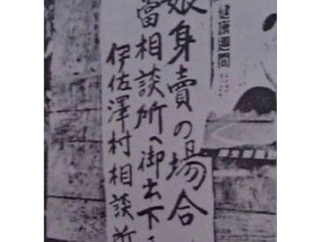 健康週間
娘身賣の場合
當相談所へ御出下さ
伊佐澤村相談所